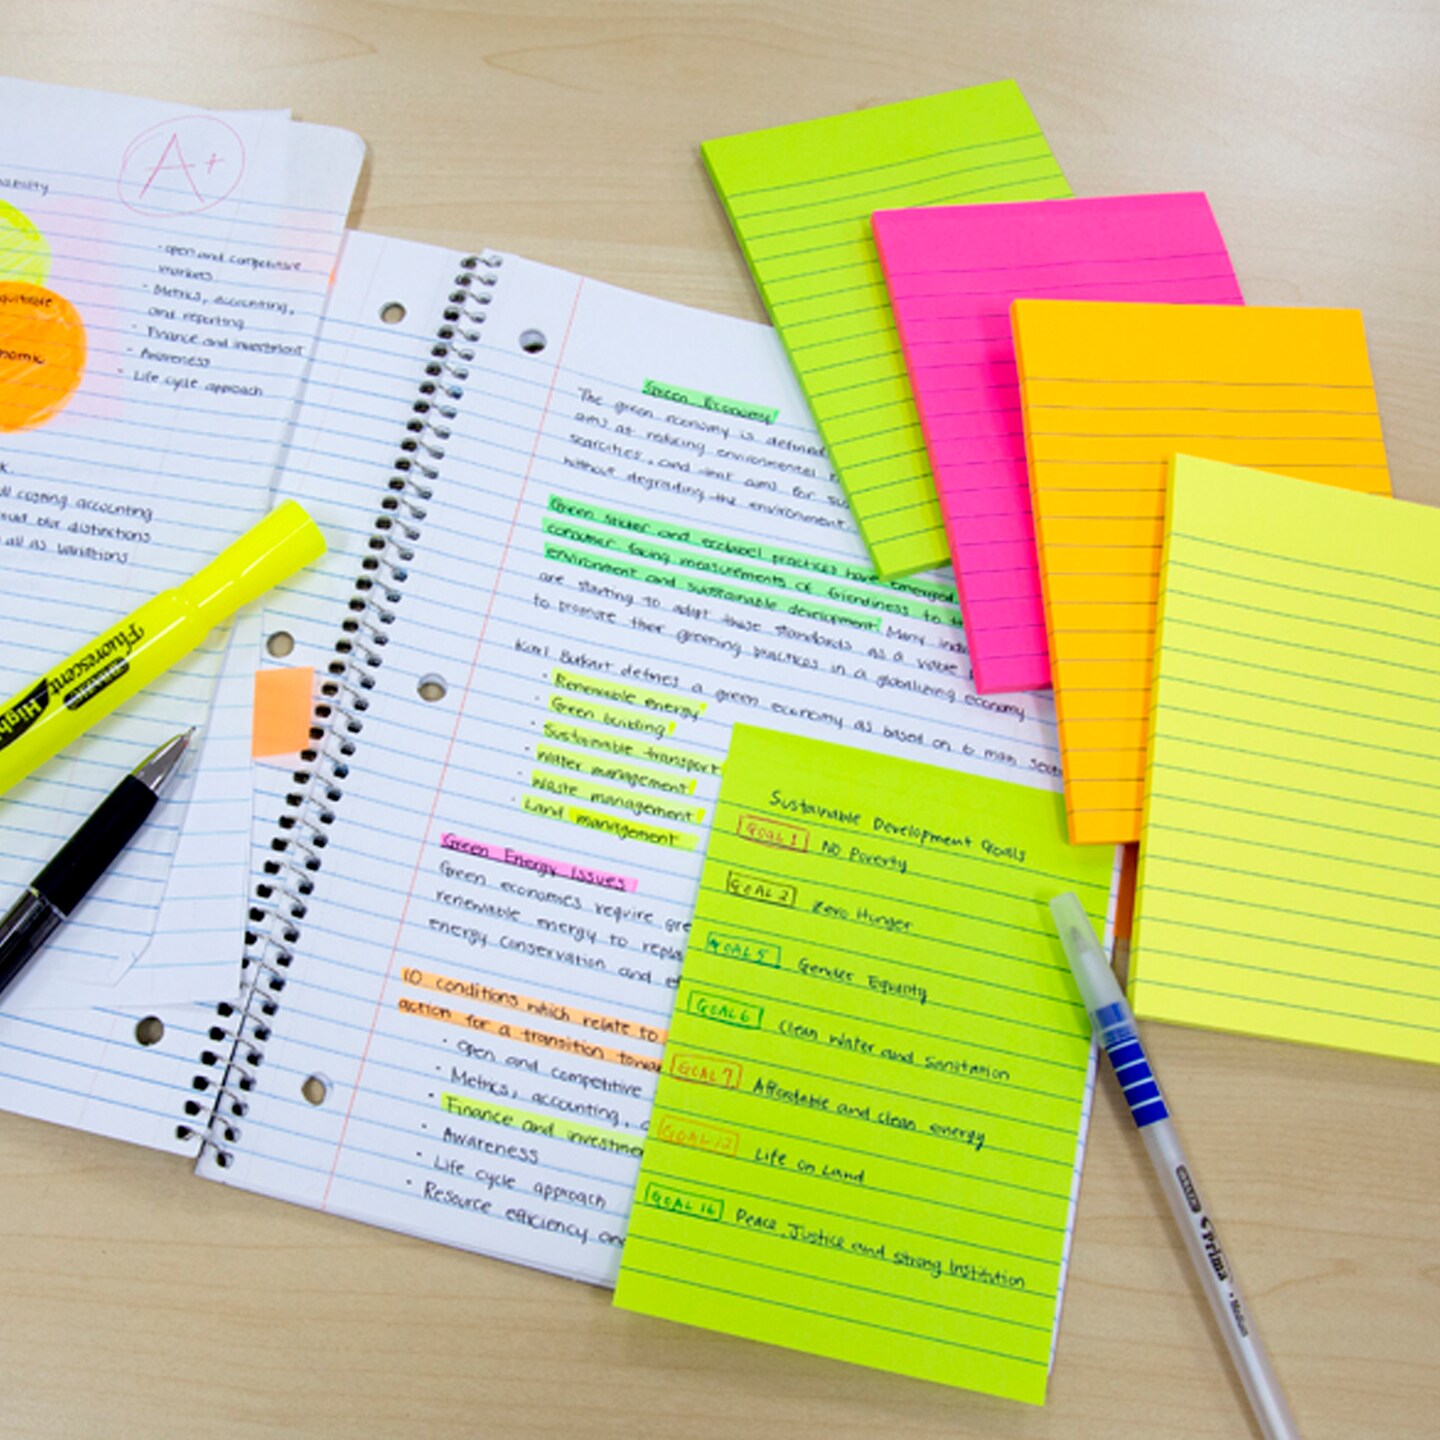 A+
· open and competitive
markets
· Metrics, accounting,
and reporting
· Finance and investment
· Awareness
· Life cycle approach
nomic
ll costing accounting
all as variations
Fluorescent
High
Green Economy
The green economy is defined
aims at reducing environmental
scarcities, and that aims for
without degrading the environment.
Green sticker and ecolabel practices have emerged
consumer facing measurements of friendliness to
environment and sustainable development. Many
are starting to adopt these standards as a viable
to promote their greening practices in a globalizing economy
Karl Burkart defines a green economy as based on 6 main
· Renewable energy
· Green building
· Sustainable transport
· Water management
· Waste management
· Land management
Green Energy Issues
Green economies require
renewable energy to
energy conservation and
10 conditions which relate to
action for a transition
· open and competitive
· Metrics, accounting,
· Finance and
· Awareness
· Life cycle approach
· Resource efficiency
Sustainable Development Goals
GOAL 1 No Poverty
GOAL 2 Zero Hunger
GOAL 5 Gender Equality
GOAL 6 Clean Water and Sanitation
GOAL 7 Affordable and clean energy
GOAL 12 Life on Land
GOAL 16 Peace, Justice and strong Institution
Prima • Medium